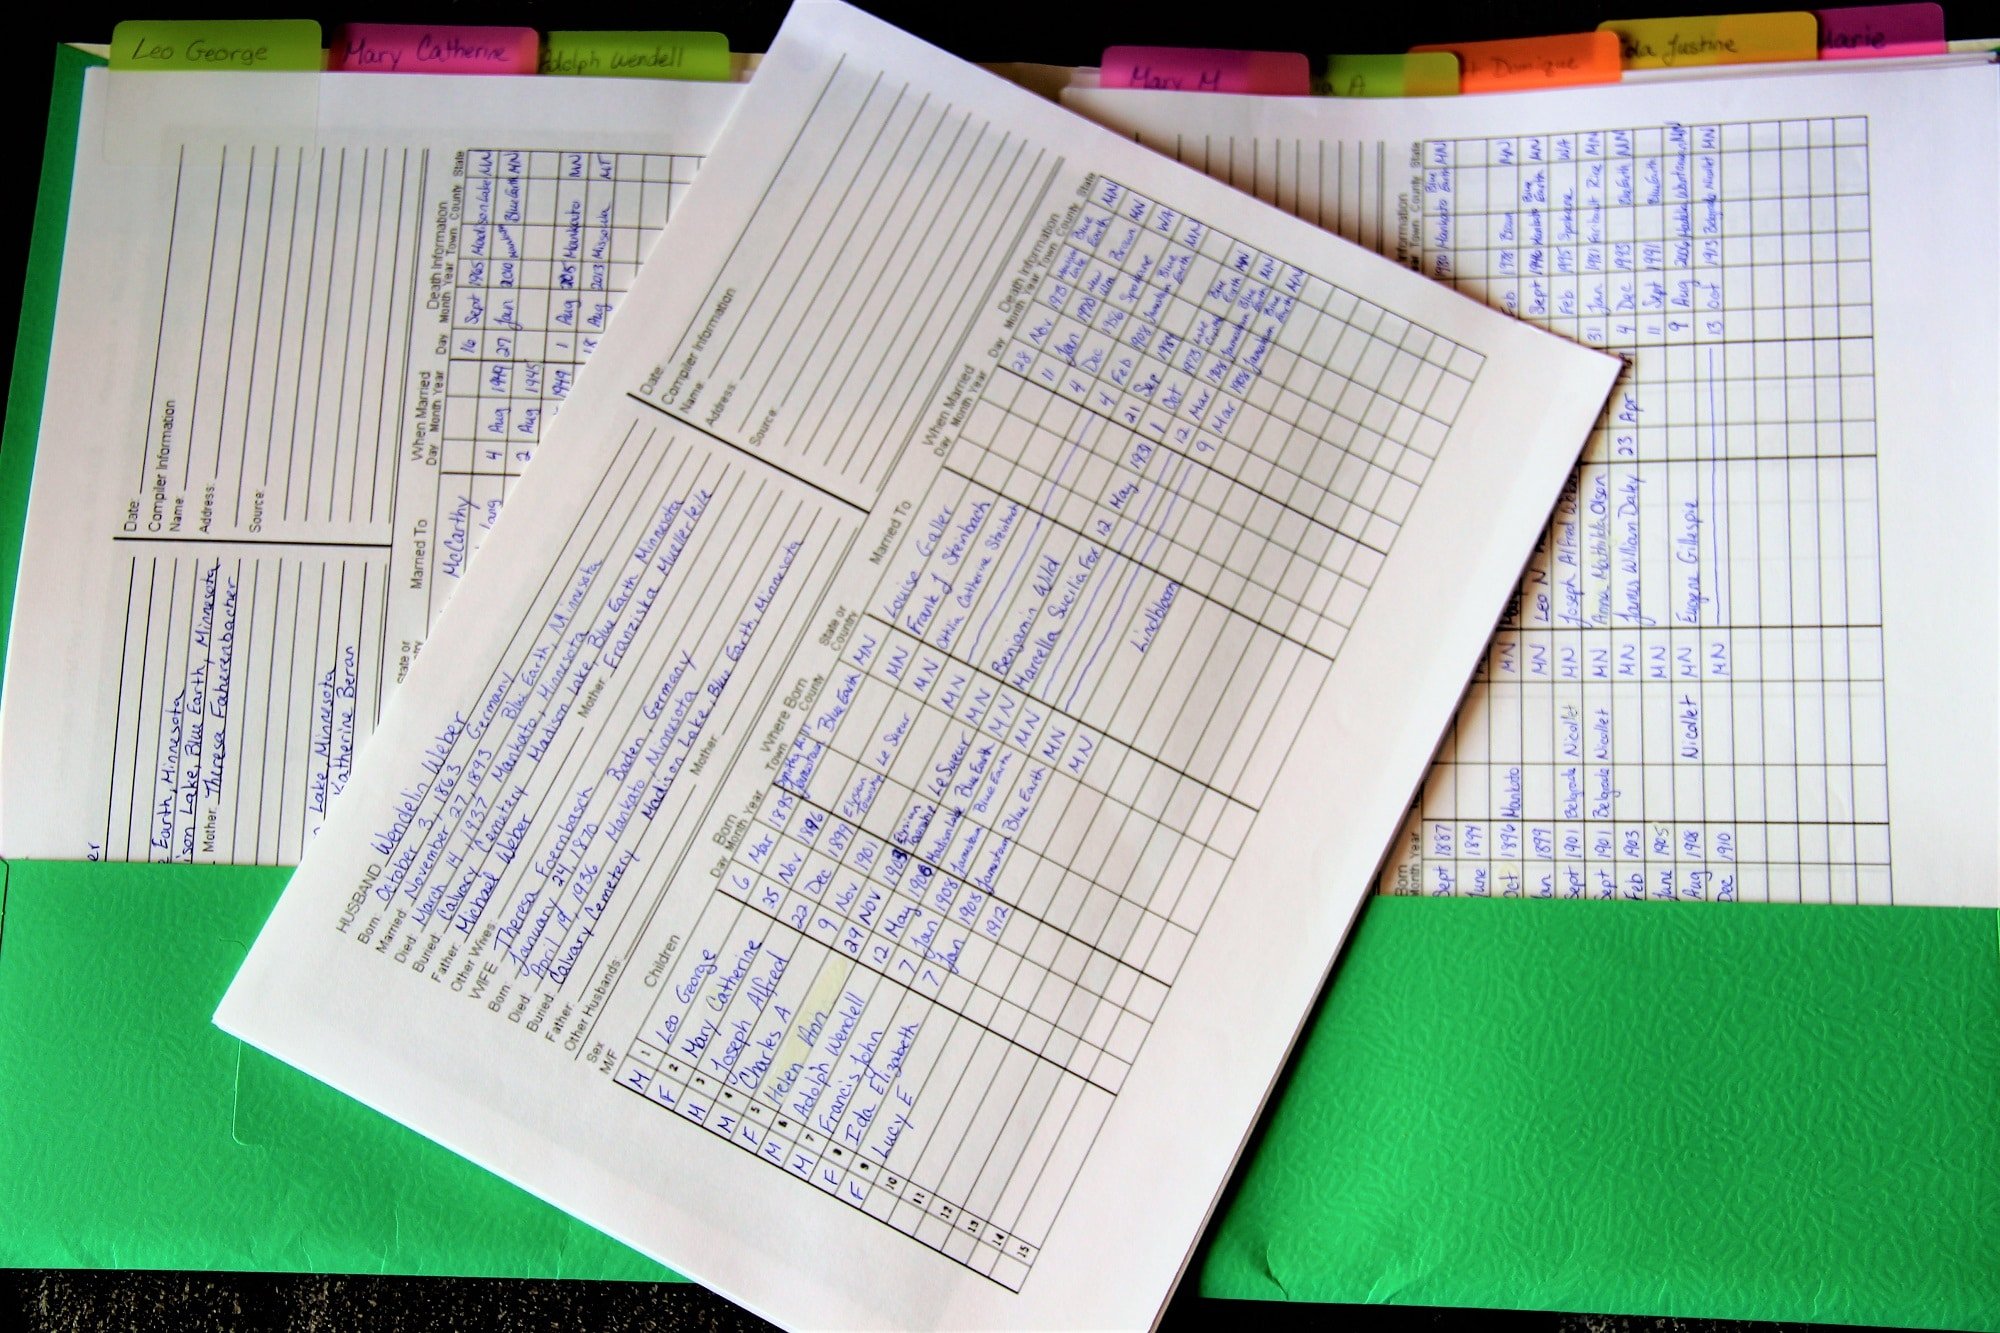 Leo George
Mary Catherine
Adolph Wendell
Mary M
A
Dominique
Ida Justine
Marie
Date:
Compiler Information
Name:
Address:
Source:
Married To
When Married
Day Month Year
Death Information
Day Month Year Town County State
McCarthy
16 Sept 1965 Madison Lake MN
Lang
4 Aug 1949 27 Jan 2010 Mankato Blue Earth MN
2 Aug 1945
1949 1 Aug 2005 Mankato MN
18 Aug 2013 Missoula MT
Earth, Minnesota
Lake, Blue Earth, Minnesota
Mother: Theresa Faherenbacher
Lake Minnesota
Katherine Beran
HUSBAND Wendelin Weber
Born: October 3, 1863 Germany
Married: November 27, 1893 Blue Earth, Minnesota
Died: March 14, 1937 Mankato, Minnesota
Buried: Calvary Cemetery Madison Lake, Blue Earth Minnesota
Father: Michael Weber Mother: Franziska Muellerleile
Other Wives:
WIFE Theresa Foernbasch
Born: January 24, 1870 Baden, Germany
Died: April 19, 1936 Mankato, Minnesota
Buried: Calvary Cemetery Madison Lake, Blue Earth, Minnesota
Father: Mother:
Other Husbands:
Date:
Compiler Information
Name:
Address:
Source:
Sex M/F
Children
Born
Day Month Year
Where Born
Town County State or Country
Married To
When Married
Day Month Year
Death Information
Day Month Year Town County State
M 1 Leo George 6 Mar 1895 Jamestown Blue Earth MN Louise Galler 28 Nov 1975 Lake Blue Earth MN
F 2 Mary Catherine 25 Nov 1896 MN Frank J Steinbach 11 Jan 1990 New Ulm Brown MN
M 3 Joseph Alfred 22 Dec 1899 Elysian Township Le Sueur MN Ottilia Catherine Steinbach 4 Dec 1956 Spokane WA
M 4 Charles A 9 Nov 1901 MN 4 Feb 1908 Jamestown Blue Earth MN
F 5 Helen Ann 29 Nov 1903 Elysian Township Le Sueur MN Benjamin Wild 21 Sep 1984
M 6 Adolph Wendell 12 May 1906 Madison Lake Blue Earth MN Marcella Sucilia Fox 12 May 1931 1 Oct 1973 Blue Earth MN
M 7 Francis John 7 Jan 1908 Jamestown Blue Earth MN 12 Mar 1908 Jamestown Blue Earth MN
F 8 Ida Elizabeth 7 Jan 1908 Jamestown Blue Earth MN 9 Mar 1908 Jamestown Blue Earth MN
F 9 Lucy E 1912 MN Lindbloom
10
11
12
13
14
15
Information
Town County State
Born
Month Year
Sept 1887 1980 Mankato Blue Earth MN
June 1894
Oct 1896 Mankato MN Feb 1978 Brown MN
Jan 1899 MN Leo N Sept 1946 Mankato Blue Earth MN
Sept 1901 Belgrade Nicollet MN Joseph Alfred Feb 1995 Spokane WA
Sept 1901 Belgrade Nicollet MN Anna Mathilda Olson 31 Jan 1981 Faribault Rice MN
Feb 1903 MN James William Daley 23 Apr 4 Dec 1993 Blue Earth MN
June 1905 MN 11 Sept 1991 Blue Earth
Aug 1908 Nicollet MN Eugene Gillespie 9 Aug MN
Dec 1910 MN 13 Oct 1913 Belgrade Nicollet MN